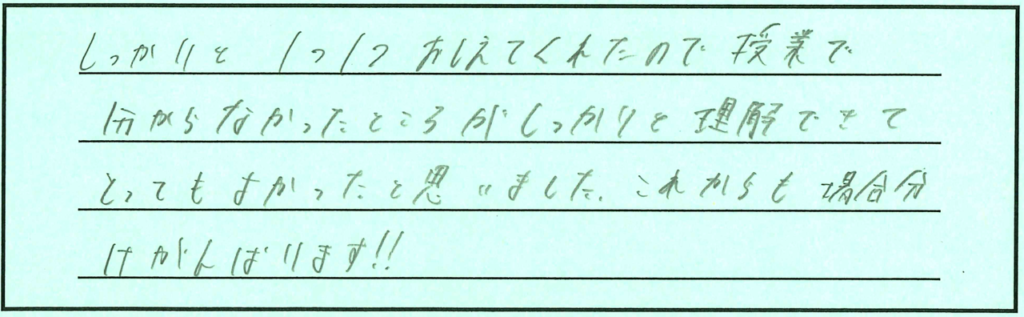 しっかりと1つ1つおしえてくれたので授業で
分からなかったところがしっかりと理解できて
とってもよかったと思いました。これからも場合分
けがんばります!!